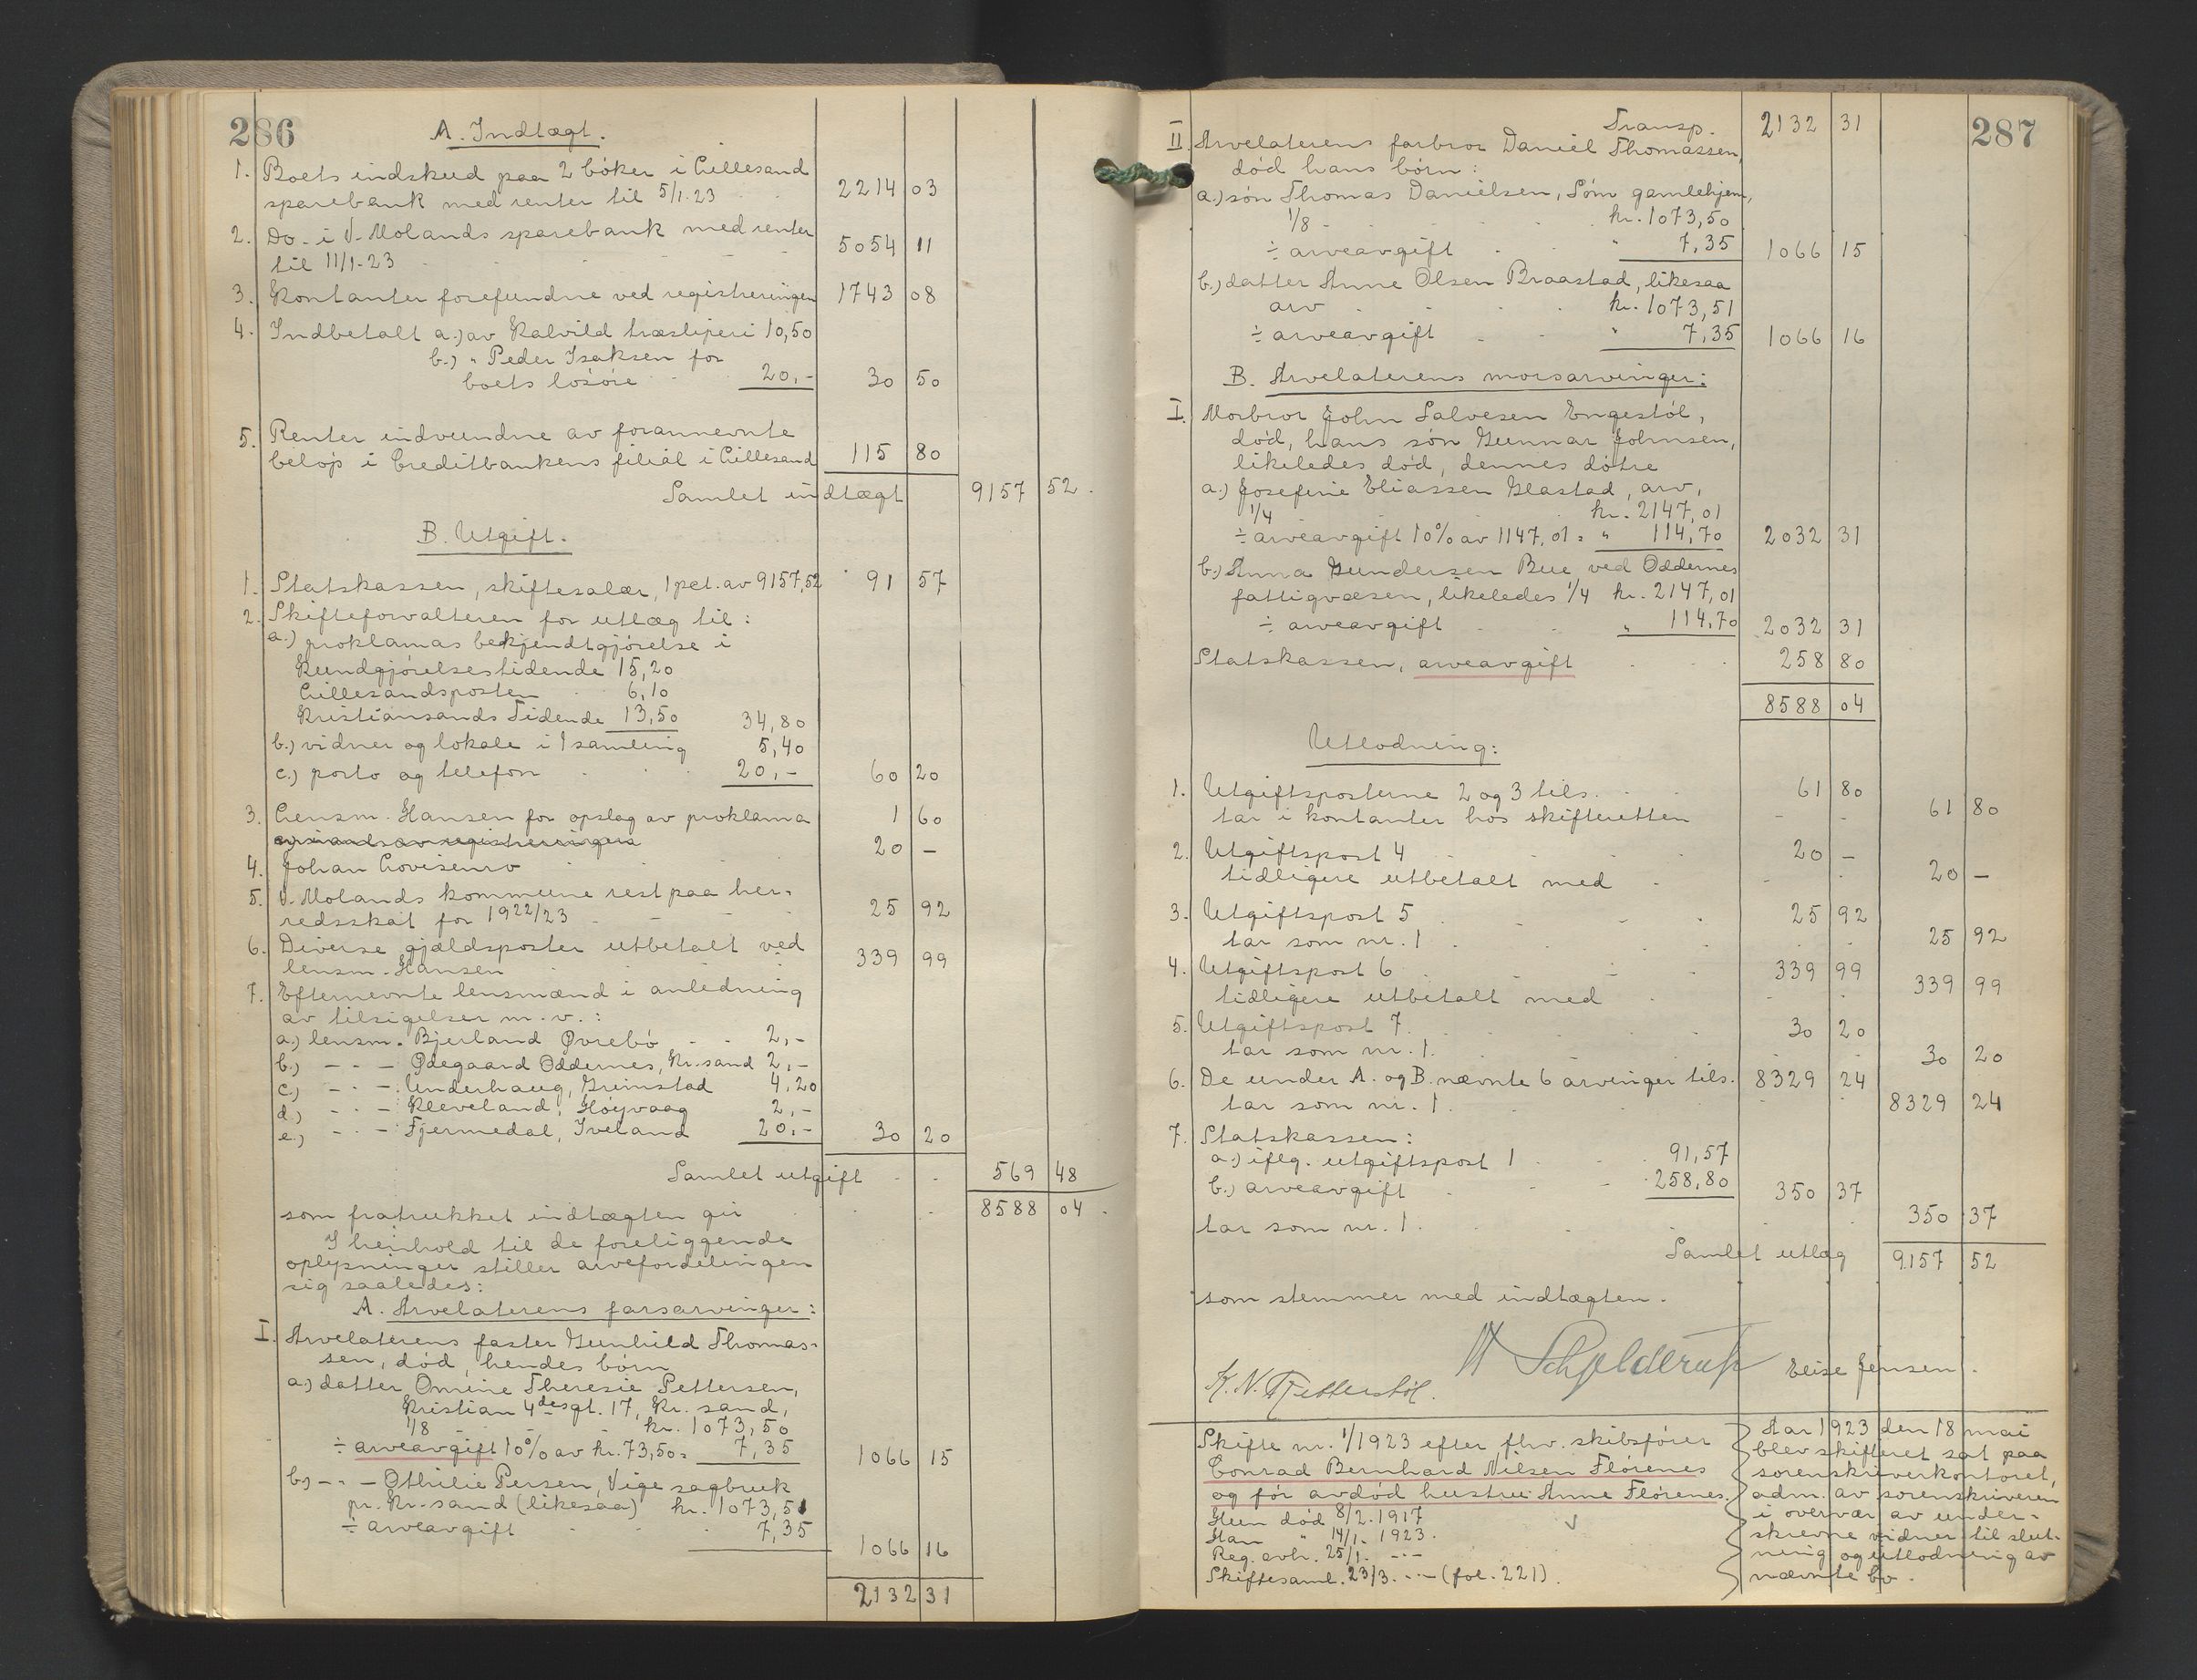 286
A. Indtægt.
1. Boets indskud paa 2 böker i Lillesand
sparebank med renter til 5/1-23 2214 03
2. Do. i V. Molands sparebank med renter
til 11/1-23 5054 11
3. Kontanter forefundne ved registreringen 1743 08
4. Indbetalt a.) av Kalvild træsliperi 10,50
b.) " Peder Isaksen for
boets løsøre 20,- 30 50
5. Renter indvundne av forannevnte
beløp i Creditbankens filial i Lillesand 115 80
Samlet indtægt 9157 52.
B. Utgift.
1. Statskassen, skiftesalær, 1 pct. av 9157,52 91 57
2. Skifteforvalteren for utlæg til:
a.) proklamas bekjendtgjörelse i
Kundgjörelsestidende 15,20
Lillesandsposten 6,10
Kristiansands Tidende 13,50 34,80
b.) vidner og lokale i 1 samling 5,40
c.) porto og telefon 20,- 60 20
3. Lensm. Hansen for opslag av proklama 1 60
20 -
4. Johan Lovisenro
5. V. Molands kommune rest paa her-
redsskat for 1922/23 25 92
6. Diverse gjældsposter utbetalt ved
lensm. Hansen 339 99
7. Efternevnte lensmænd i anledning
av tilsigelser m. v.:
a.) lensm. Bjerland Øvrebö 2,-
b.) - - - Ødegaard Oddernes, Kr.sand 2,-
c.) - - - Underhaug, Grimstad 4,20
d.) - - - Kleveland, Höyvaag 2,-
e.) - - - Fjermedal, Iveland 20,- 30 20
Samlet utgift 569 48
som fratrukket indtægten gir 8588 04.
I henhold til de foreliggende
oplysninger stiller arvefordelingen
sig saaledes:
A. Arvelaterens farsarvinger:
I. Arvelaterens faster Gunhild Thomas-
sen, död, hendes börn
a.) datter Omine Theresie Pettersen,
Kristian 4des gt. 17, Kr. sand,
1/8 kr. 1073,50
÷ arveavgift 10% av kr. 73,50 = 7,35 1066 15
b.) - - - Othilie Persen, Vige sagbruk
pr. Kr.sand (likesaa) kr. 1073,51
÷ arveavgift 7,35 1066 16
2132 31
287
Transp. 2132 31
II. Arvelaterens farbror Daniel Thomassen,
död hans börn:
a.) sön Thomas Danielsen, Söm gamlehjem,
1/8 kr. 1073,50
÷ arveavgift " 7,35 1066 15
b.) datter Anne Olsen Braastad, likesaa
arv kr. 1073,51
÷ arveavgift " 7,35 1066 16
B. Arvelaterens morsarvinger:
I. Morbror John Salvesen Engestöl,
död, hans sön Gunnar Johnsen,
likeledes död, dennes dötre
a.) Josefine Eliassen Glastad, arv,
1/4 kr. 2147,01
÷ arveavgift 10% av 1147,01 = " 114,70 2032 31
b.) Anna Gundersen Bue ved Oddernes
fattigvæsen, likeledes 1/4 kr. 2147,01
÷ arveavgift " 114,70 2032 31
Statskassen, arveavgift 258 80
8588 04
Utlodning:
1. Utgiftsposterne 2 og 3 tils. 61 80
tar i kontanter hos skifteretten 61 80
2. Utgiftspost 4 20 -
tidligere utbetalt med 20 -
3. Utgiftspost 5 25 92
tar som nr. 1 25 92
4. Utgiftspost 6 339 99
tidligere utbetalt med 339 99
5. Utgiftspost 7 30 20
tar som nr. 1. 30 20
6. De under A. og B. nævnte 6 arvinger tils. 8329 24
tar som nr. 1 8329 24
7. Statskassen:
a.) iflg. utgiftspost 1 91,57
b.) arveavgift 258,80 350 37
tar som nr. 1. 350 37
Samlet utlæg 9157 52
som stemmer med indtægten.
Schjelderup Elise Jensen.
K. N. Tjetterstöl.
Skifte nr. 1/1923 efter fhv. skibsförer
Conrad Bernhard Nilsen Flörenes
og för avdöd hustru Anne Flörenes.
Hun död 8/2.1917
Han " 14/1. 1923.
Reg. avh. 25/1. - - -
Skiftesaml. 23/3. - - - (fol. 221).
Aar 1923 den 18 mai
blev skifteret sat paa
sorenskriverkontoret,
adm. av sorenskriveren
i overvær av under-
skrevne vidner til slut-
ning og utlodning av
nævnte bo.